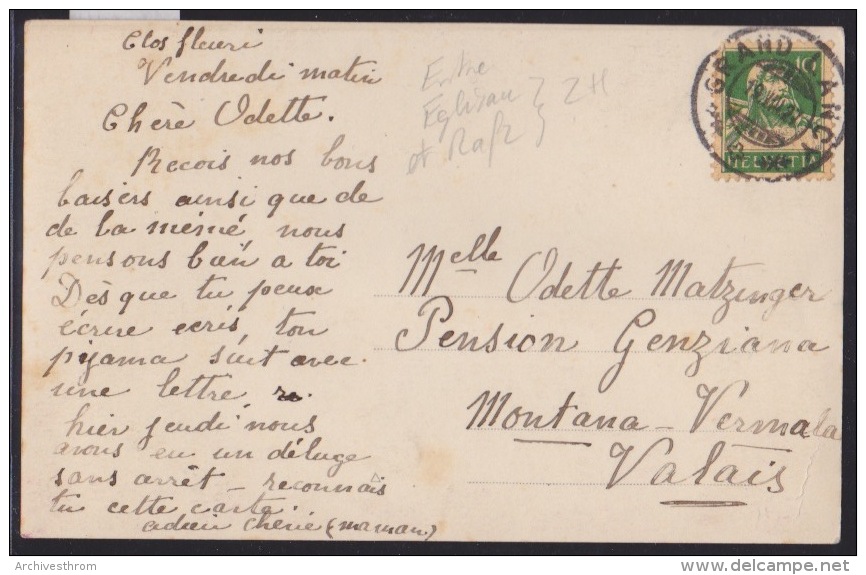 Clos fleuri
Vendredi matin
Chère Odette.
Recois nos bons
baisers ainsi que de
de la mémé nous
pensons bien a toi
Dès que tu peux
écrire ecris, ton
pijama suit avec
une lettre,
hier jeudi nous
avons eu un déluge
sans arrêt – reconnais
tu cette carte.
adieu cherie (maman)
Entre
Eglisau
et Rafz
ZH
10
GRAND LANCY
HELVETIA
Melle Odette Matzinger
Pension Genziana
Montana-Vermala
Valais
Archivesthrom
delcampe.net